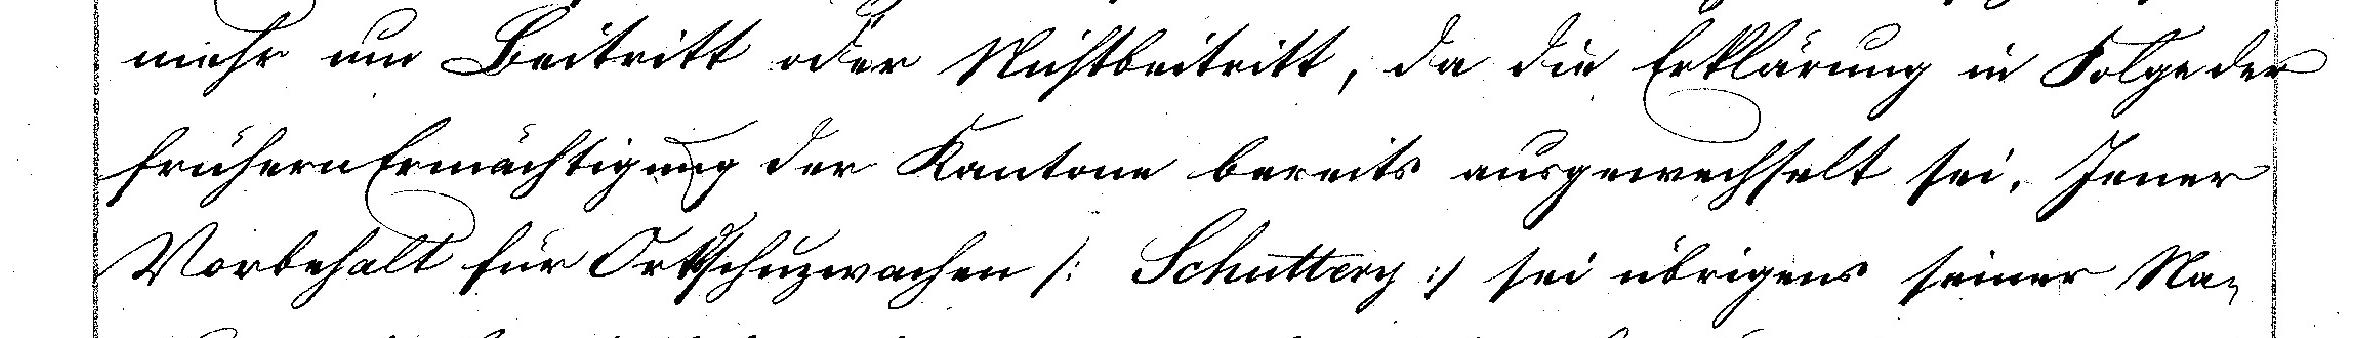 mehr um Beitritt oder Nichtbeitritt, da die Erklärung in Folge der
frühern Ermächtigung der Kantone bereits ausgewechselt sei. Jener
Vorbehalt für Ortsschuzwachen /: Schuttery :/ sei übrigens seiner Na-